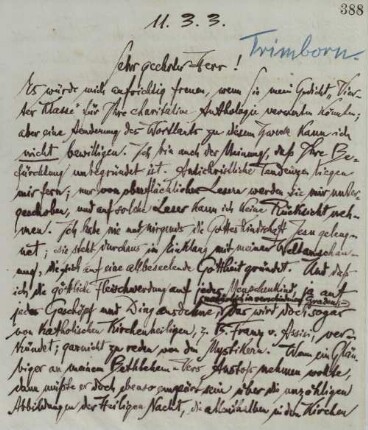 388
11. 3. 3.
Trimborn.
Sehr geehrter Herr!
Es würde mich aufrichtig freuen, wenn Sie mein Gedicht „Vier-
ter Klasse" für Ihre charitative Anthologie verwenden könnten;
aber eine Aenderung des Wortlauts zu diesem Zweck kann ich
nicht bewilligen. Ich bin auch der Meinung, daß Ihre Be-
fürchtung unbegründet ist. Antichristliche Tendenzen liegen
mir fern; nur von oberflächlichen Lesern werden Sie mir unter-
geschoben, und auf solche Leser kann ich keine Rücksicht neh-
men. Ich habe nie und nirgends die Gotteskindschaft Jesu geleug-
net; sie steht durchaus im Einklang mit meiner Weltanschau-
ung, die sich auf eine allbeseelende Gottheit gründet. Und daß
ich die göttliche Fleischwerdung auf jedes Menschenkind, ja auf
jedes Geschöpf und Ding ausdehne, das wird doch sogar
von katholischen Kirchenheiligen, z. B. Franz v. Assisi, ver-
kündet; garnicht zu reden von den Mystikern. Wenn ein Gläu-
biger an meinem Bethlehem-Vers Anstoß nehmen wollte,
dann müßte er doch ebenso empört sein über die unzähligen
Abbildungen der Heiligen Nacht, die in den Kirchen